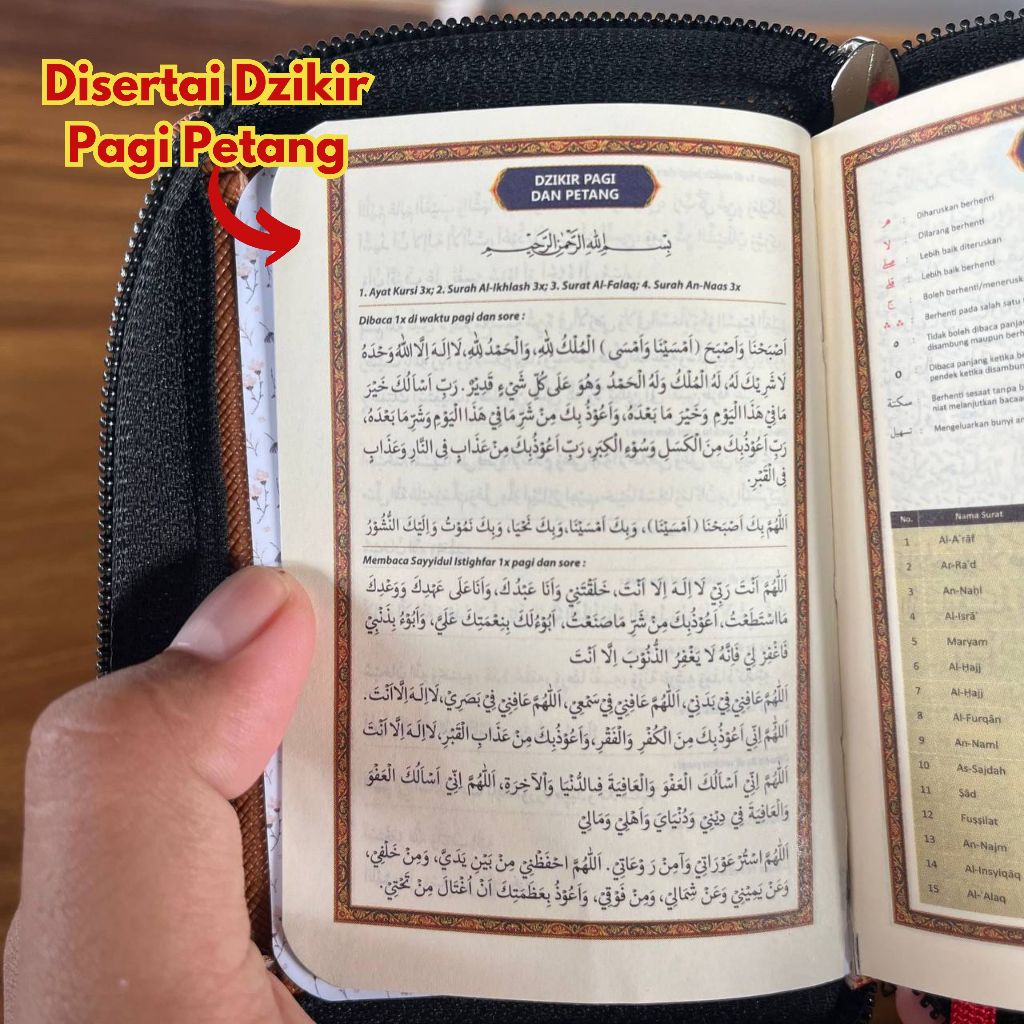 Disertai Dzikir
Pagi Petang
DZIKIR PAGI
DAN PETANG
بِسْمِ اللهِ الرَّحْمٰنِ الرَّحِيْمِ
1. Ayat Kursi 3x; 2. Surah Al-Ikhlash 3x; 3. Surat Al-Falaq; 4. Surah An-Naas 3x
Dibaca 1x di waktu pagi dan sore :
اَصْبَحْنَا وَاَصْبَحَ (اَمْسَيْنَا وَاَمْسَى) الْمُلْكُ لِلّٰهِ، وَالْحَمْدُ لِلّٰهِ، لَا اِلٰهَ اِلَّا اللهُ وَحْدَهُ
لَا شَرِيْكَ لَهُ، لَهُ الْمُلْكُ وَلَهُ الْحَمْدُ وَهُوَ عَلَى كُلِّ شَيْءٍ قَدِيْرٌ. رَبِّ اَسْاَلُكَ خَيْرَ
مَا فِيْ هَذَا الْيَوْمِ وَخَيْرَ مَا بَعْدَهُ، وَاَعُوْذُ بِكَ مِنْ شَرِّ مَا فِيْ هَذَا الْيَوْمِ وَشَرِّ مَا بَعْدَهُ،
رَبِّ اَعُوْذُبِكَ مِنَ الْكَسَلِ وَسُوْءِ الْكِبَرِ، رَبِّ اَعُوْذُبِكَ مِنْ عَذَابٍ فِى النَّارِ وَعَذَابٍ
فِى الْقَبْرِ.
اَللّٰهُمَّ بِكَ اَصْبَحْنَا (اَمْسَيْنَا)، وَبِكَ اَمْسَيْنَا، وَبِكَ نَحْيَا، وَبِكَ نَمُوْتُ وَاِلَيْكَ النُّشُوْرُ
Membaca Sayyidul Istighfar 1x pagi dan sore :
اَللّٰهُمَّ اَنْتَ رَبِّيْ لَا اِلٰهَ اِلَّا اَنْتَ، خَلَقْتَنِيْ وَاَنَا عَبْدُكَ، وَاَنَا عَلَى عَهْدِكَ وَوَعْدِكَ
مَا اسْتَطَعْتُ، اَعُوْذُبِكَ مِنْ شَرِّ مَا صَنَعْتُ، اَبُوْءُ لَكَ بِنِعْمَتِكَ عَلَيَّ، وَاَبُوْءُ بِذَنْبِيْ
فَاغْفِرْ لِيْ فَاِنَّهُ لَا يَغْفِرُ الذُّنُوْبَ اِلَّا اَنْتَ
اَللّٰهُمَّ عَافِنِيْ فِيْ بَدَنِيْ، اَللّٰهُمَّ عَافِنِيْ فِيْ سَمْعِيْ، اَللّٰهُمَّ عَافِنِيْ فِيْ بَصَرِيْ، لَا اِلٰهَ اِلَّا اَنْتَ.
اَللّٰهُمَّ اِنِّيْ اَعُوْذُبِكَ مِنَ الْكُفْرِ وَالْفَقْرِ، وَاَعُوْذُبِكَ مِنْ عَذَابِ الْقَبْرِ، لَا اِلٰهَ اِلَّا اَنْتَ
اَللّٰهُمَّ اِنِّيْ اَسْاَلُكَ الْعَفْوَ وَالْعَافِيَةَ فِى الدُّنْيَا وَالْاٰخِرَةِ، اَللّٰهُمَّ اِنِّيْ اَسْاَلُكَ الْعَفْوَ
وَالْعَافِيَةَ فِيْ دِيْنِيْ وَدُنْيَايَ وَاَهْلِيْ وَمَالِيْ
اَللّٰهُمَّ اسْتُرْ عَوْرَاتِيْ وَآمِنْ رَوْعَاتِيْ. اَللّٰهُمَّ احْفَظْنِيْ مِنْ بَيْنِ يَدَيَّ، وَمِنْ خَلْفِيْ،
وَعَنْ يَمِيْنِيْ وَعَنْ شِمَالِيْ، وَمِنْ فَوْقِيْ، وَاَعُوْذُ بِعَظَمَتِكَ اَنْ اُغْتَالَ مِنْ تَحْتِيْ.
م : Diharuskan berhenti
لا : Dilarang berhenti
صلى : Lebih baik diteruskan
قلى : Lebih baik berhenti
ج : Boleh berhenti/menerusk
∴ ∴ : Berhenti pada salah satu
o : Tidak boleh dibaca panja
disambung maupun berh
o : Dibaca panjang ketika b
pendek ketika disambun
سكتة : Berhenti sesaat tanpa b
niat melanjutkan bacaa
تسهيل : Mengeluarkan bunyi an
No. Nama Surat
1 Al-A'rāf
2 Ar-Ra'd
3 An-Naḥl
4 Al-Isrā'
5 Maryam
6 Al-Ḥajj
7 Al-Ḥajj
8 Al-Furqān
9 An-Naml
10 As-Sajdah
11 Ṣād
12 Fuṣṣilat
13 An-Najm
14 Al-Insyiqāq
15 Al-'Alaq